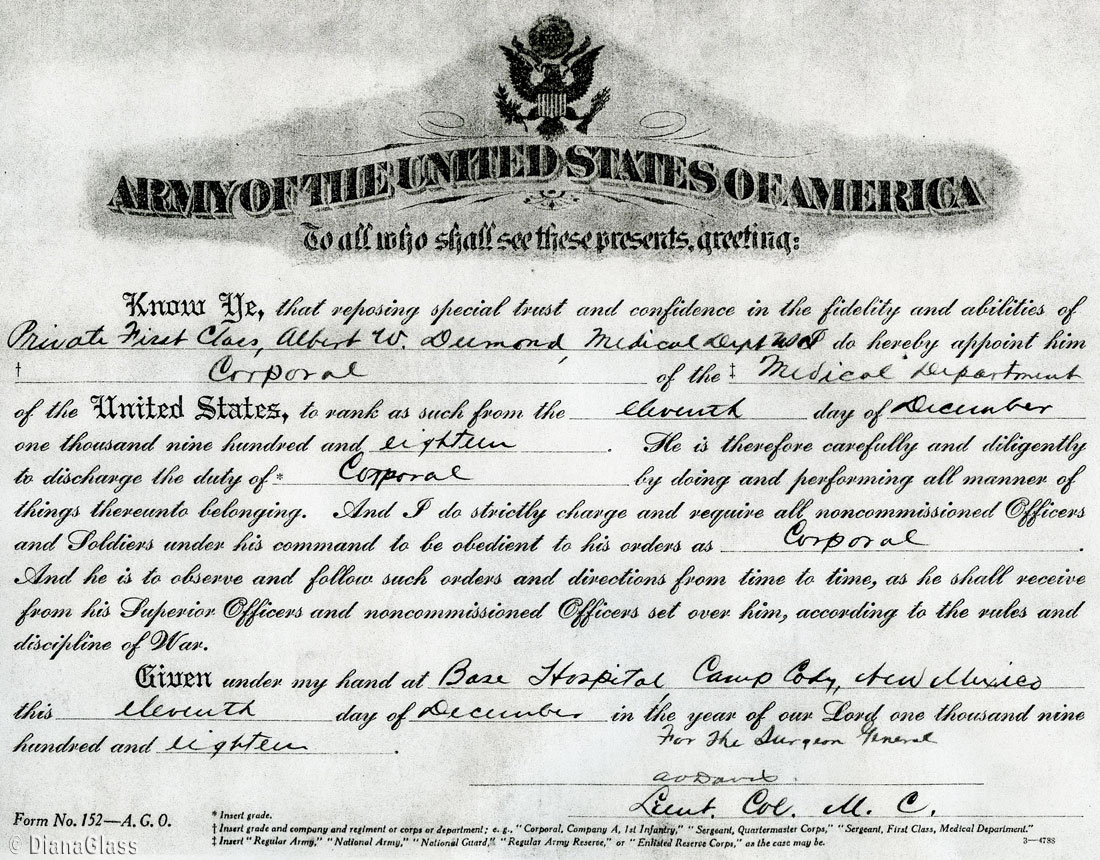 ARMY OF THE UNITED STATES OF AMERICA
To all who shall see these presents, greeting:
Know Ye, that reposing special trust and confidence in the fidelity and abilities of
Private First Class, Albert W. Dumond, Medical Dept do hereby appoint him
† Corporal of the ‡ Medical Department
of the United States, to rank as such from the eleventh day of December
one thousand nine hundred and eighteen. He is therefore carefully and diligently
to discharge the duty of * Corporal by doing and performing all manner of
things thereunto belonging. And I do strictly charge and require all noncommissioned Officers
and Soldiers under his command to be obedient to his orders as Corporal.
And he is to observe and follow such orders and directions from time to time, as he shall receive
from his Superior Officers and noncommissioned Officers set over him, according to the rules and
discipline of War.
Given under my hand at Base Hospital, Camp Cody, New Mexico
this eleventh day of December in the year of our Lord one thousand nine
hundred and eighteen.
For The Surgeon General
A O Davis.
Lieut. Col. M. C.
Form No. 152—A. G. O.
* Insert grade.
† Insert grade and company and regiment or corps or department; e. g., "Corporal, Company A, 1st Infantry," "Sergeant, Quartermaster Corps," "Sergeant, First Class, Medical Department."
‡ Insert "Regular Army," "National Army," "National Guard," "Regular Army Reserve," or "Enlisted Reserve Corps," as the case may be.
3—4788
© DianaGlass